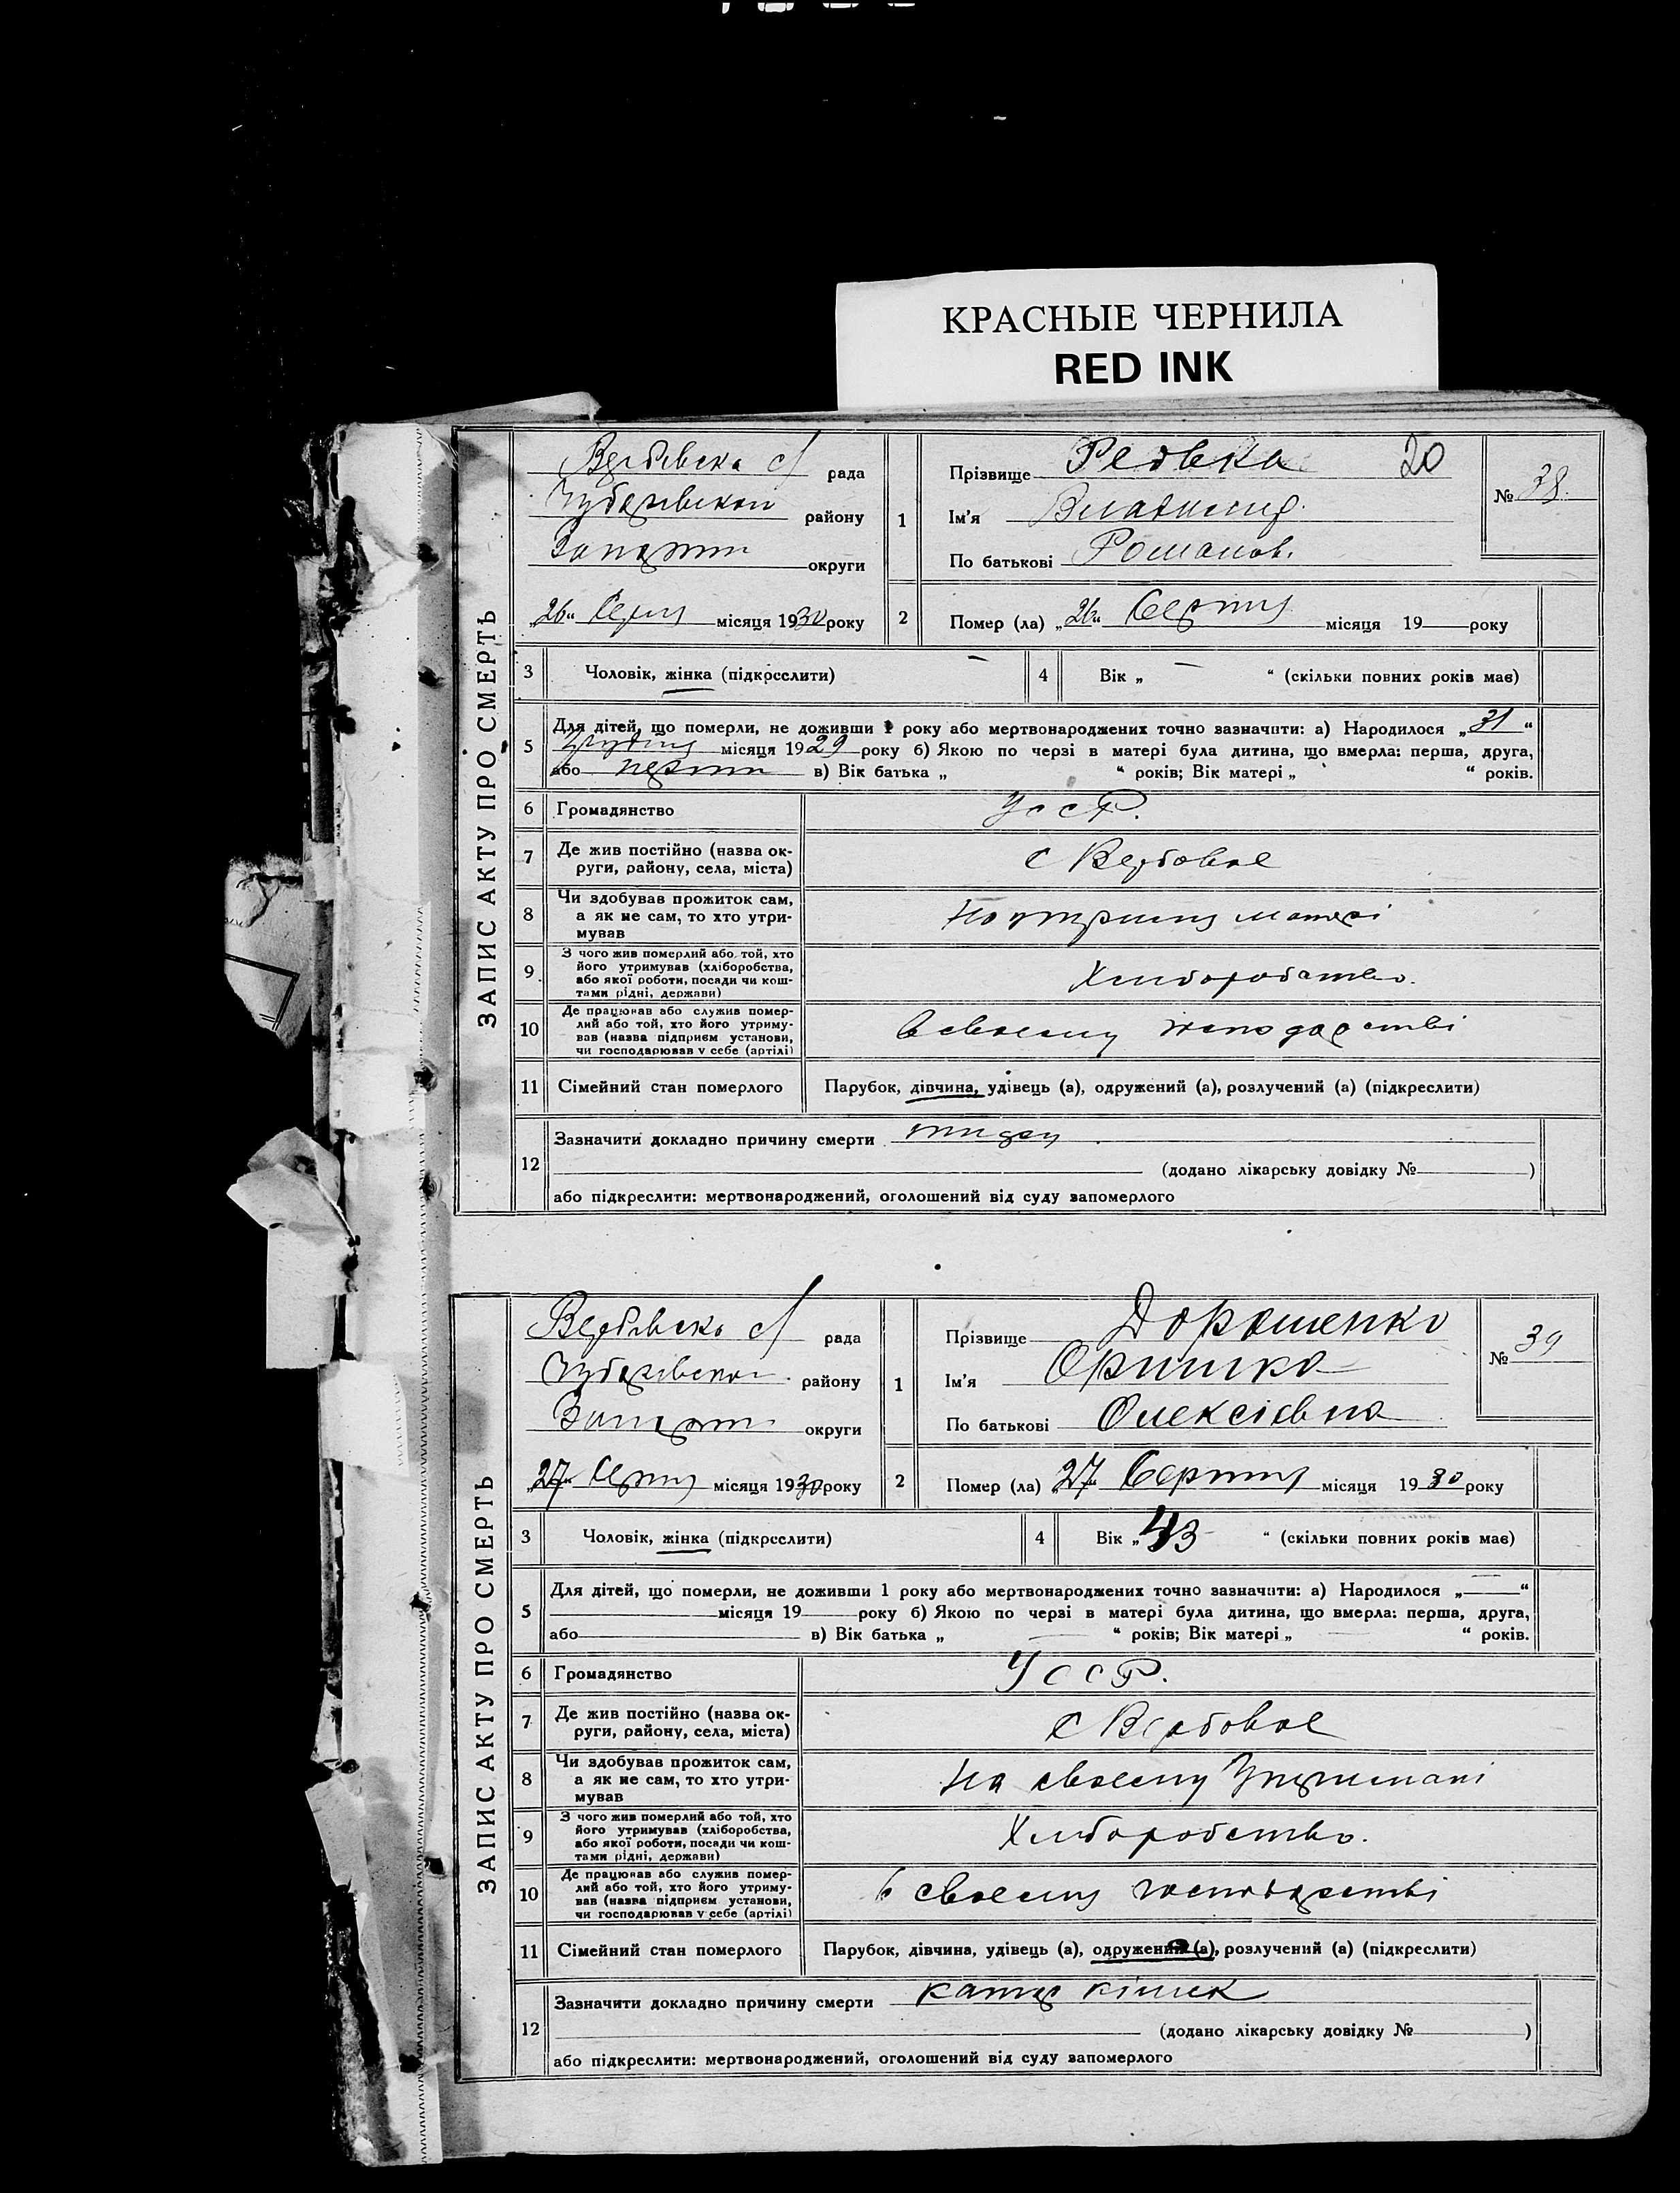 КРАСНЫЕ ЧЕРНИЛА
RED INK
ЗАПИС АКТУ ПРО СМЕРТЬ
Вербівська с/ рада
району
округи
"26" Серпня місяця 1930 року
1
Прізвище Редька 20
Ім'я Владимир.
По батькові Романов.
№ 38.
2
Помер (ла) „26" Серпня місяця 19 року
3 Чоловік, жінка (підкреслити) –
4 Вік „ – " (скільки повних років має)
5 Для дітей, що померли, не доживши 1 року або мертвонароджених точно зазначити: а) Народилося „31"
грудня місяця 1929 року б) Якою по черзі в матері була дитина, що вмерла: перша, друга,
або в) Вік батька „ " років; Вік матері „ " років.
6 Громадянство УССР.
7 Де жив постійно (назва округи, району, села, міста) с Вербовое
8 Чи здобував прожиток сам, а як не сам, то хто утримував матері
9 З чого жив померлий або той, хто його утримував (хліборобства, або якої роботи, посади чи коштами рідні, держави) Хлиборобство.
10 Де працював або служив померлий або той, хто його утримував (назва підприєм установи, чи господарював у себе (артілі) в своему
11 Сімейний стан померлого Парубок, дівчина, удівець (а), одружений (а), розлучений (а) (підкреслити)
12 Зазначити докладно причину смерти
(додано лікарську довідку № )
або підкреслити: мертвонароджений, оголошений від суду запомерлого
ЗАПИС АКТУ ПРО СМЕРТЬ
Вербівська с/ рада
району
округи
„27" Серпня місяця 1930 року
1
Прізвище Дорошенко
Ім'я Оришка
По батькові Олексієвна
№ 39
2
Помер (ла) „27" Серпня місяця 1930 року
3 Чоловік, жінка (підкреслити)
4 Вік „43 " (скільки повних років має)
5 Для дітей, що померли, не доживши 1 року або мертвонароджених точно зазначити: а) Народилося „—"
місяця 19 року б) Якою по черзі в матері була дитина, що вмерла: перша, друга,
або в) Вік батька „ — " років; Вік матері „ — " років.
6 Громадянство УССР.
7 Де жив постійно (назва округи, району, села, міста) с Вербовое
8 Чи здобував прожиток сам, а як не сам, то хто утримував На своему
9 З чого жив померлий або той, хто його утримував (хліборобства, або якої роботи, посади чи коштами рідні, держави) Хлиборобство.
10 Де працював або служив померлий або той, хто його утримував (назва підприєм установи, чи господарював у себе (артілі) в своему
11 Сімейний стан померлого Парубок, дівчина, удівець (а), одружений (а), розлучений (а) (підкреслити)
12 Зазначити докладно причину смерти катар кишек
(додано лікарську довідку № )
або підкреслити: мертвонароджений, оголошений від суду запомерлого